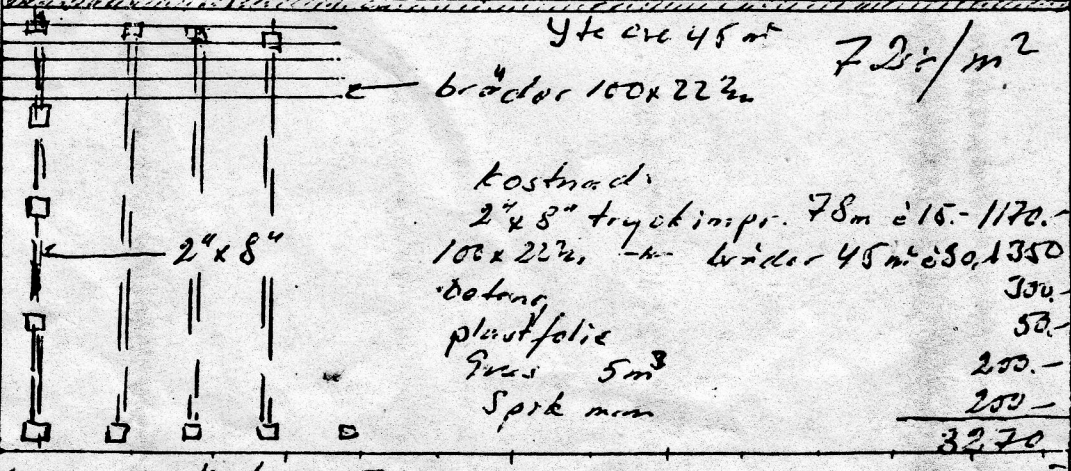 Yta ca 45 m²
72kr/m²
bräder 100x22 m/m
Kostnad:
2"x8" tryckimpr. 78m à 15.- 1170.-
2"x8"
100x22 m/m -"- bräder 45m² à 30,- 1350
Betong 300.-
plastfolie 50.-
Grus 5m³ 200.-
Spik mm 200.-
3270.-